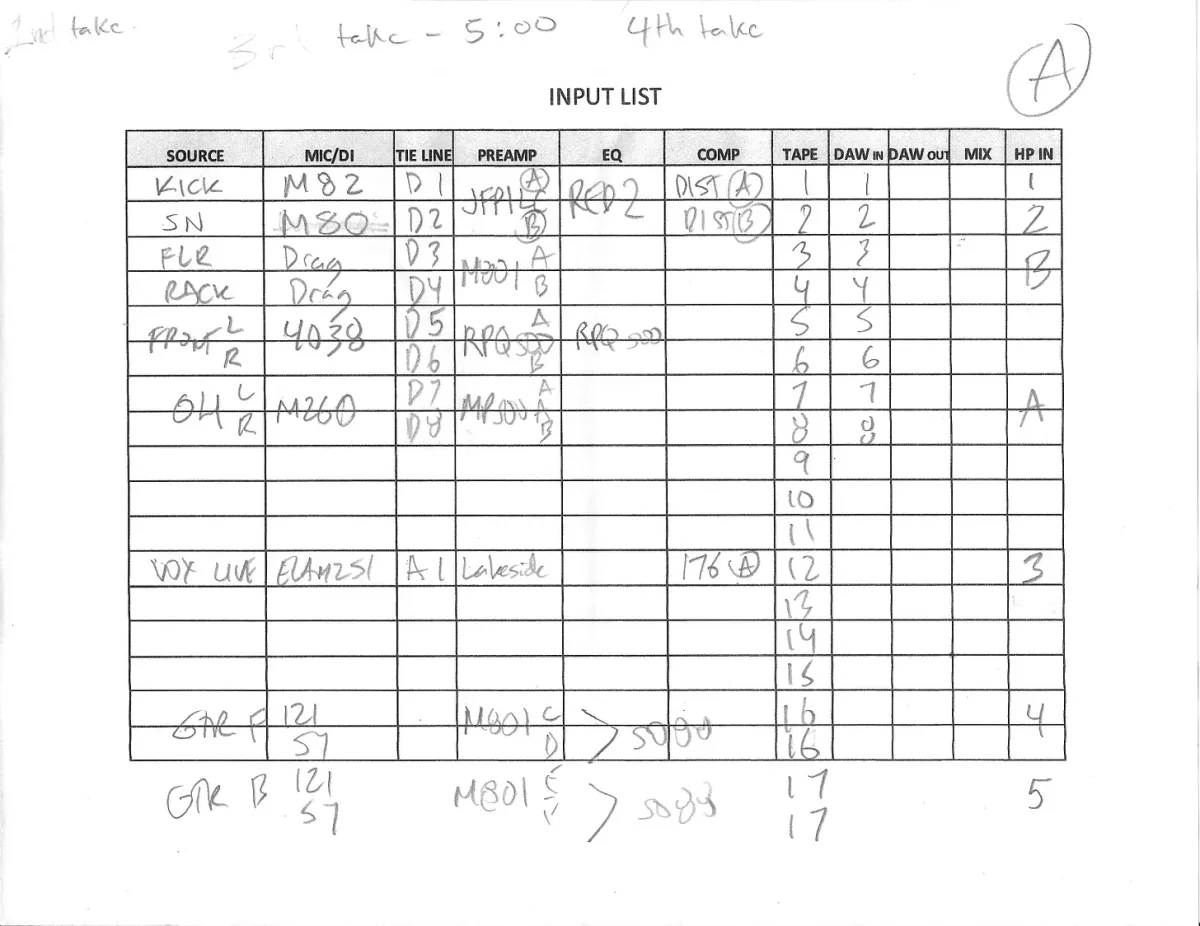 2nd take
3rd take - 5:00
4th take
A
INPUT LIST
SOURCE MIC/DI TIE LINE PREAMP EQ COMP TAPE DAW IN DAW OUT MIX HP IN
KICK M82 D1 A RED 2 DIST A 1 1 1
SN M80 D2 B DIST B 2 2 2
FLR Drag D3 M801 A 3 3 B
RACK Drag D4 B 4 4
FRONT L 4038 D5 RPQ500 A RPQ 500 5 5
R D6 B 6 6
OH L M260 D7 MP500 A 7 7 A
R D8 B 8 8
9
10
11
VOX LIVE ELAM251 A1 Lakeside 176 A 12 3
13
14
15
GTR F 121 M801 C > 5088 16 4
57 D 16
GTR B 121 M801 E > 5088 17 5
57 17